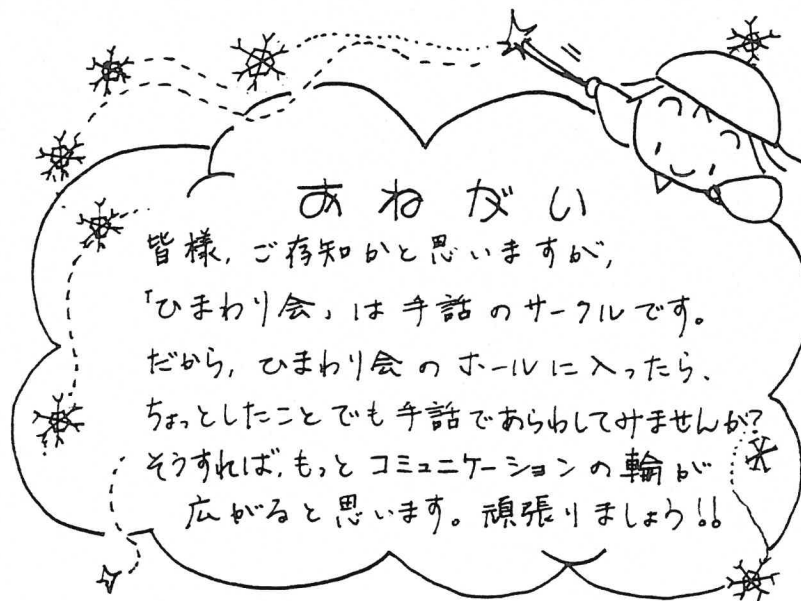 おねがい
皆様、ご存知かと思いますが、
「ひまわり会」は手話のサークルです。
だから、ひまわり会のホールに入ったら、
ちょっとしたことでも手話であらわしてみませんか?
そうすれば、もっとコミュニケーションの輪が
広がると思います。頑張りましょう!!